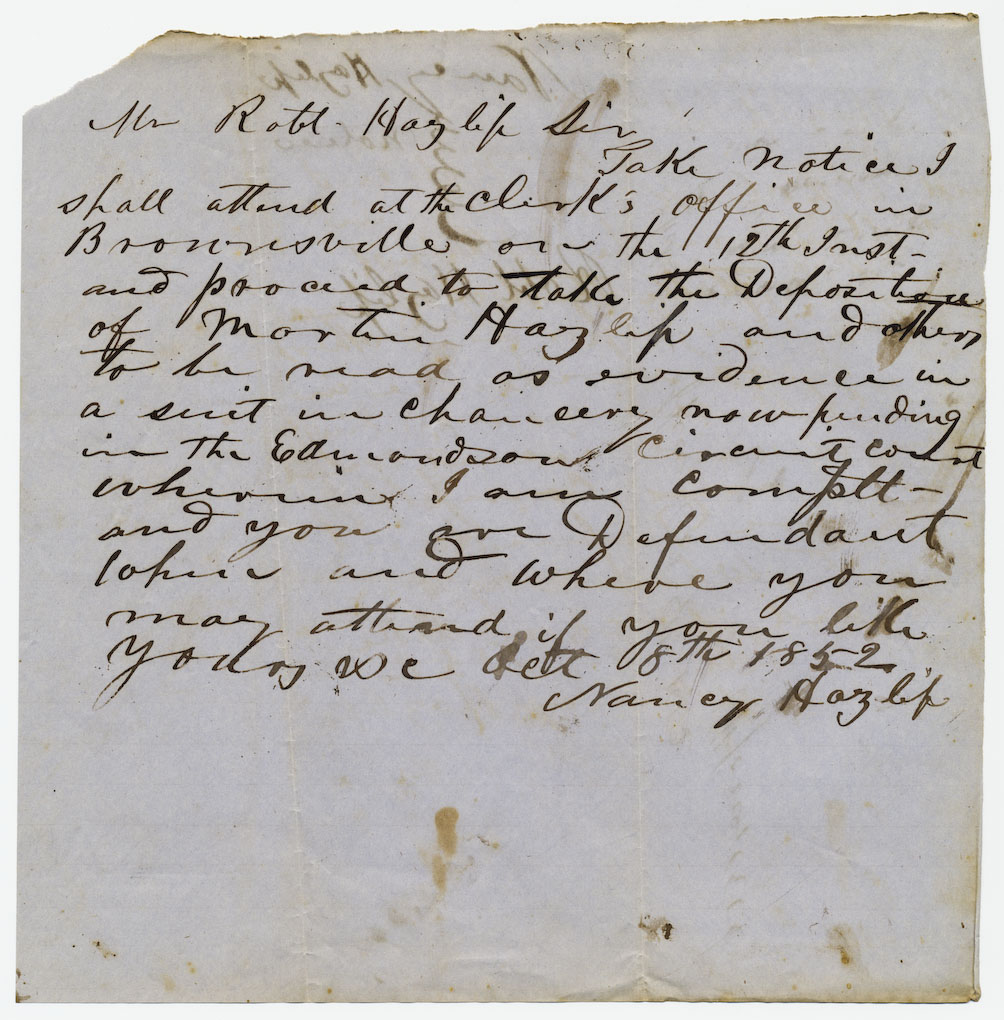 Mr Robt. Hazlip Sir,
Take notice I
shall attend at the Clerk's office in
Brownsville on the 12th Inst-
and proceed to take the Deposition
of Martin Hazlip and others
to be read as evidence in
a suit in chancery now pending
in the Edmondson circuit court
wherein I am Complt-
and you are Defendant
when and where you
may attend if you like
Yours &c Oct 8th 1852
Nancy Hazlip